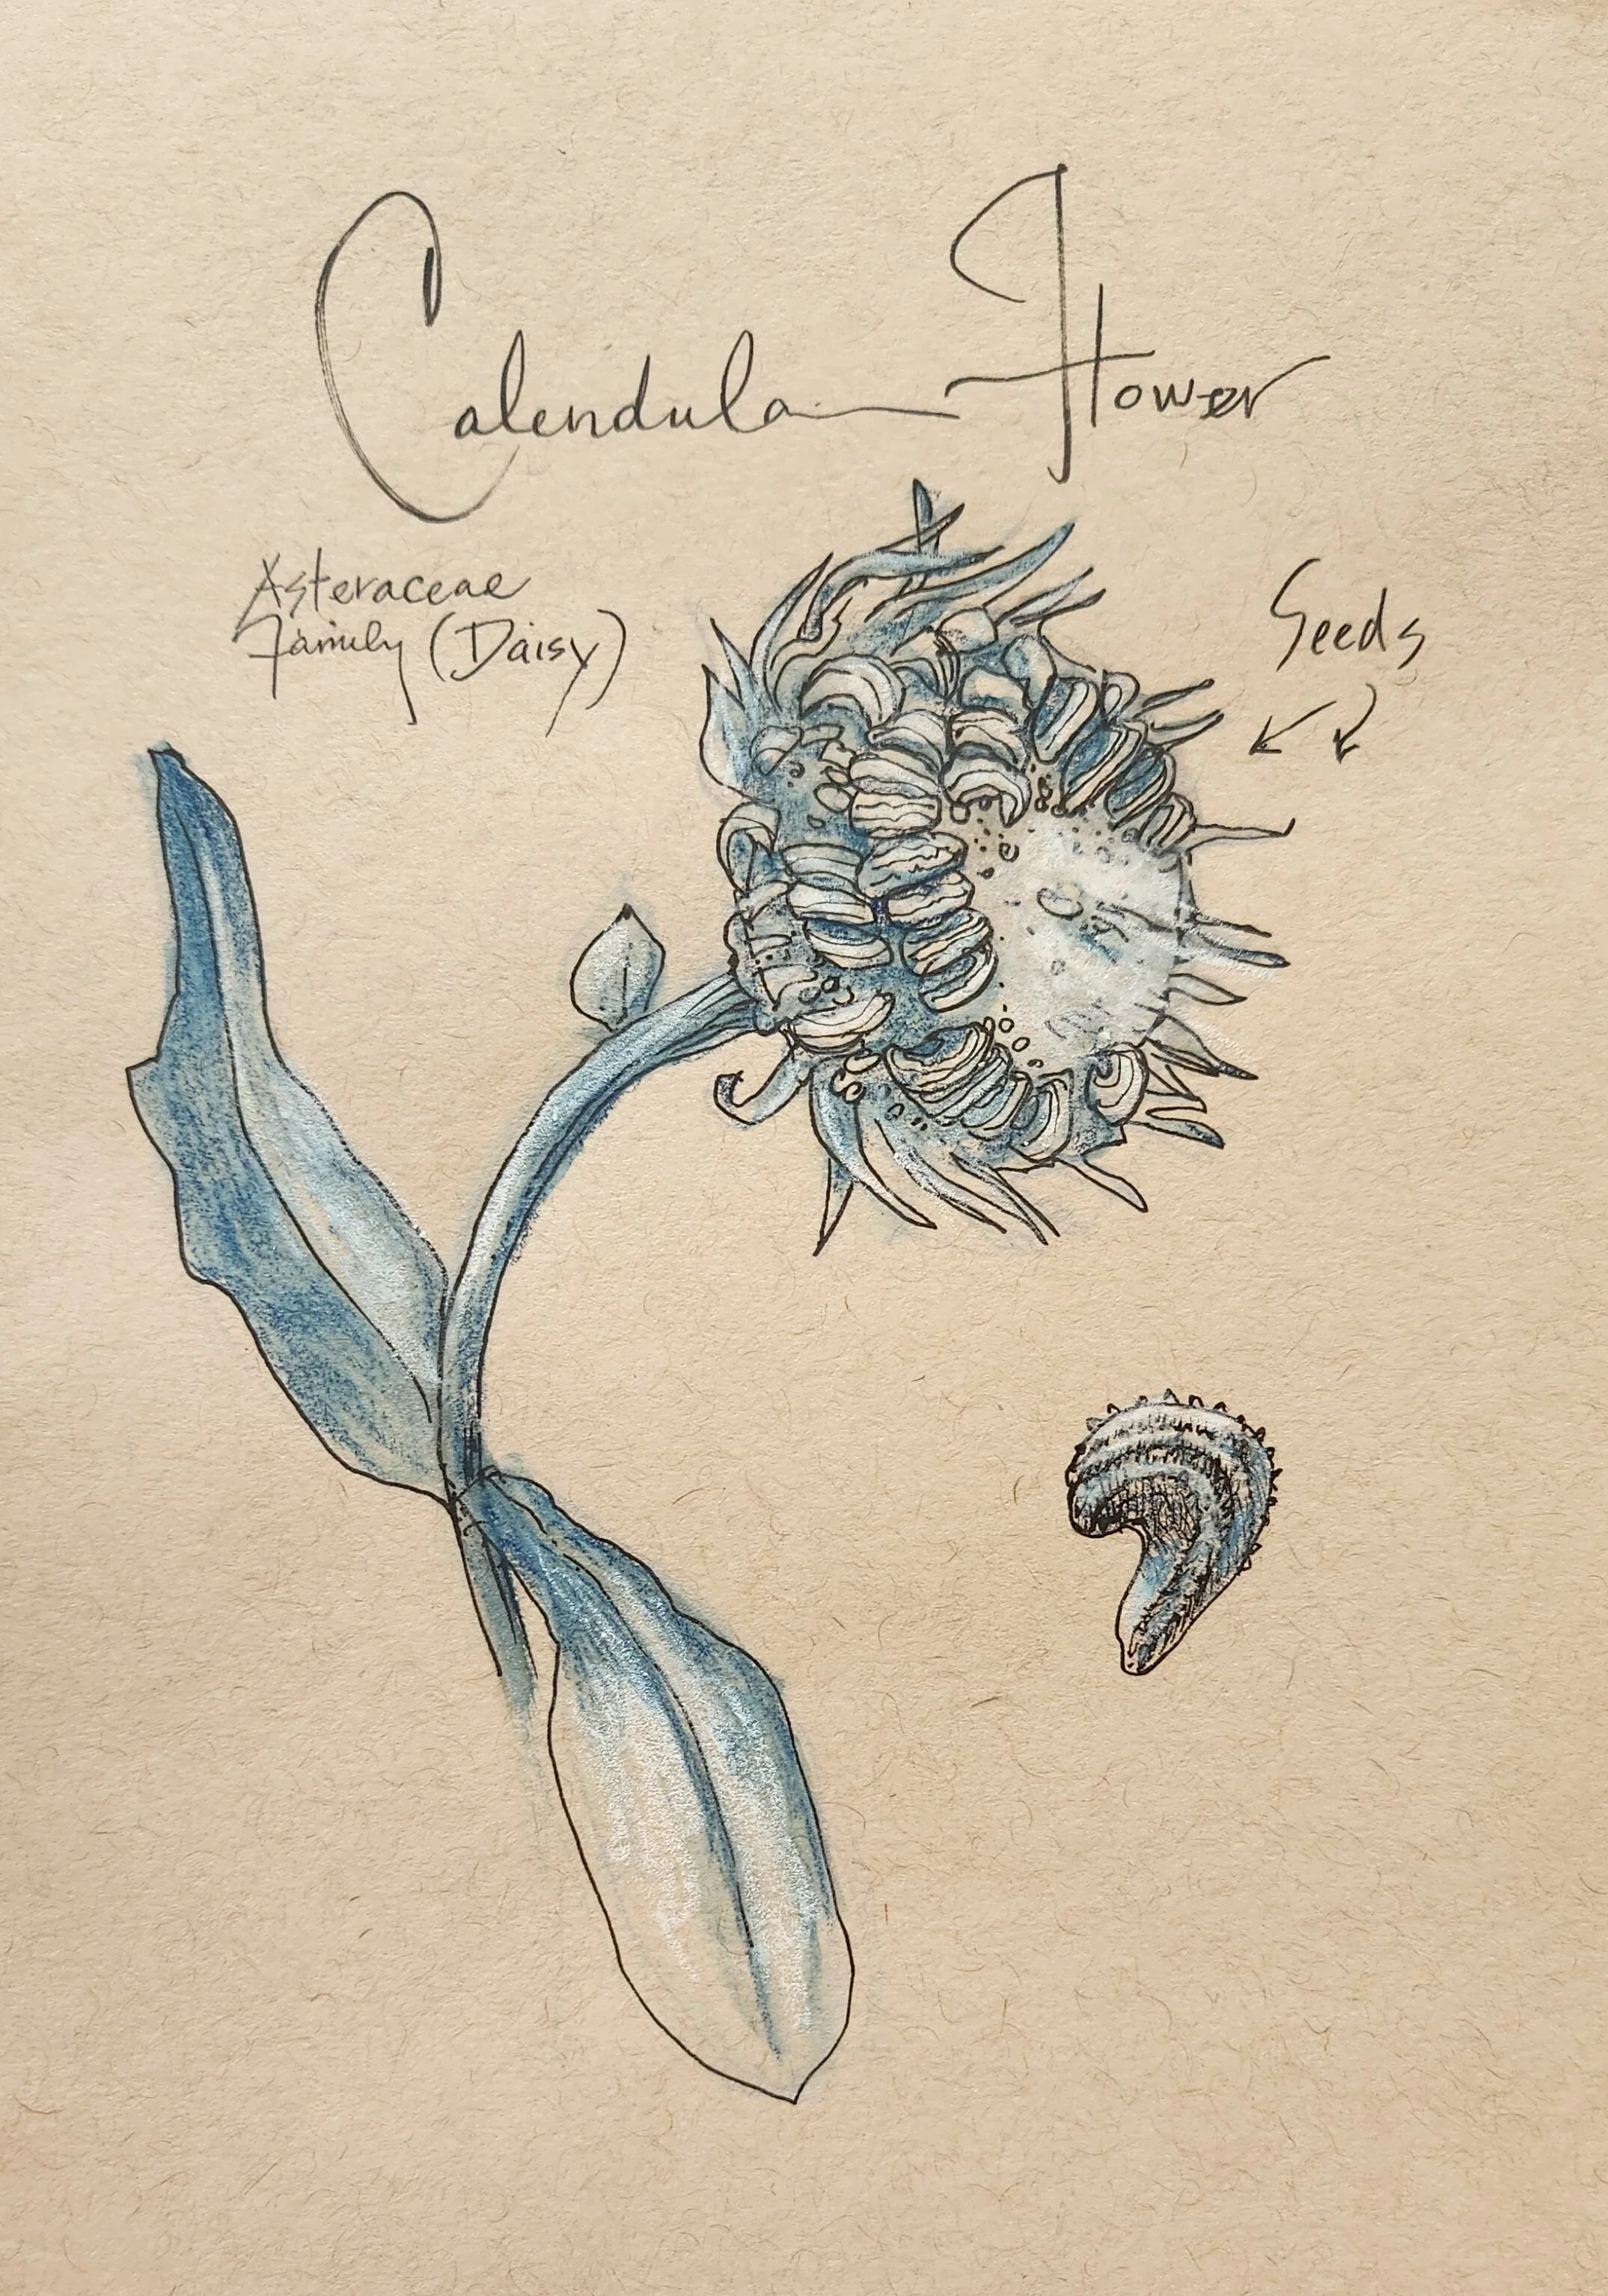 Calendula Flower
Asteraceae
Family (Daisy)
Seeds